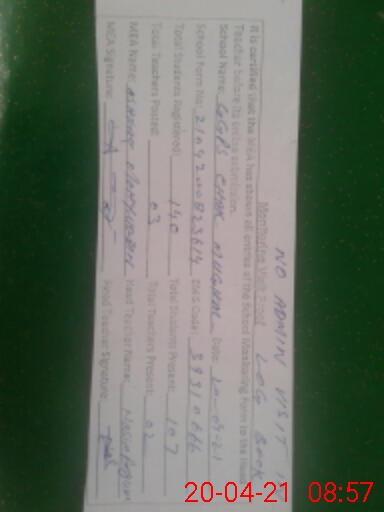 NO ADMIN VISIT IN
LOG BOOK
Monitoring Visit Proof
It is certified that the MEA has shown all entries of the School Monitoring Form to the Head
Teacher before its online submission.
School Name: GGPS CHAK MUGHAL Date: 20-04-21
School Form No: EMIS Code:
Total Students Registered: 140 Total Students Present: 107
Total Teachers Posted: 03 Total Teachers Present: 02
MEA Name: Head Teacher Name:
MEA Signature: Head Teacher Signature:
20-04-21 08:57